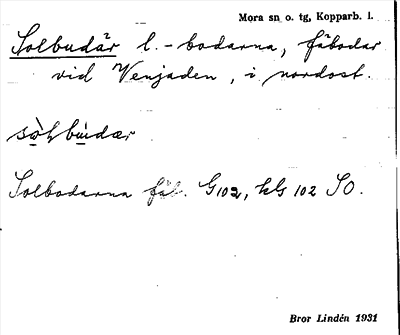 Mora sn o. tg, Kopparb. l.
Solbudär l. -bodarna, fäbodar
vid Venjaden, i nordost.
Solbodarna fäb. G102, kG 102 SO.
Bror Lindén 1931